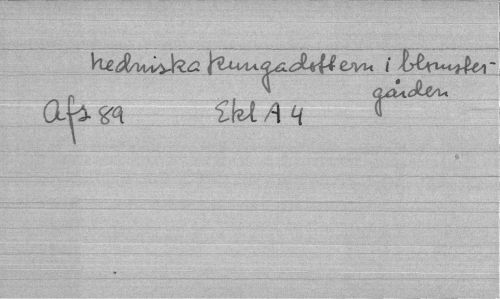 hedniska kungadottern i blomster-
gården
Afz 89 Ekl A 4